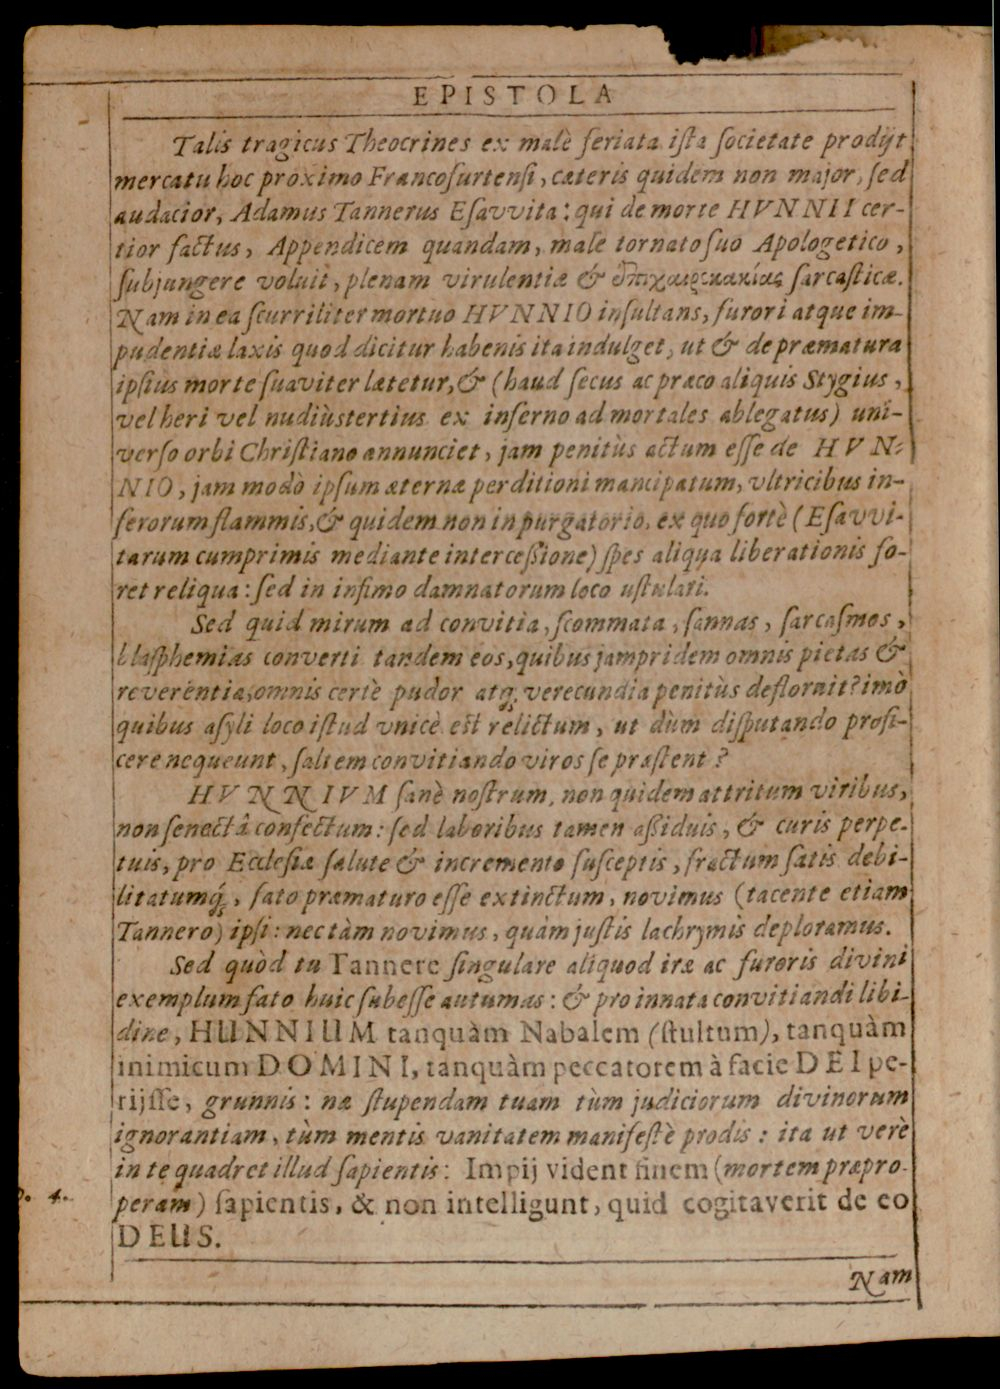 EPISTOLA
Talis tragicus Theocrines ex malè feriata ista societate prodijt
mercatu hoc proximo Francofurtensi, cæteris quidem non major, sed
audacior, Adamus Tannerus Esavvita: qui de morte HVNNII cer-
tior factus, Appendicem quandam, male tornato suo Apologetico,
subjungere voluit, plenam virulentiæ & ἐπιχαιρεκακίας sarcasticæ.
Nam in ea scurriliter mortuo HVNNIO insultans, furori atque im-
pudentiæ laxis quod dicitur habenis ita indulget, ut & de præmatura
ipsius morte suaviter lætetur, & (haud secus ac præco aliquis Stygius,
vel heri vel nudiùstertius ex inferno ad mortales ablegatus) uni-
verso orbi Christiano annunciet, jam penitùs actum esse de HVN-
NIO, jam modò ipsum æternæ perditioni mancipatum, vltricibus in-
ferorum flammis, & quidem non in purgatorio, ex quo fortè (Esavvi-
tarum cumprimis mediante intercessione) spes aliqua liberationis fo-
ret reliqua: sed in infimo damnatorum loco ustulari.
Sed quid mirum ad convitia, scommata, sannas, sarcasmos,
blasphemias converti tandem eos, quibus jampridem omnis pietas &
reverentia, omnis certè pudor atq; verecundia penitùs defloruit? imò
quibus asyli loco istud vnicè est relictum, ut dum disputando profi-
cere nequeunt, saltem convitiando viros se præstent?
HVNNIVM sanè nostrum, non quidem attritum viribus,
non senectâ confectum: sed laboribus tamen assiduis, & curis perpe-
tuis, pro Ecclesiæ salute & incremento susceptis, fractum satis debi-
litatumq;, fato præmaturo esse extinctum, novimus (tacente etiam
Tannero) ipsi: nec tàm novimus, quàm justis lachrymis deploramus.
Sed quòd tu Tannere singulare aliquod iræ ac furoris divini
exemplum fato huic subesse autumas: & pro innata convitiandi libi-
dine, HUNNIUM tanquàm Nabalem (stultum), tanquàm
inimicum DOMINI, tanquàm peccatorem à facie DEI pe-
rijsse, grunnis: næ stupendam tuam tùm judiciorum divinorum
ignorantiam, tùm mentis vanitatem manifestè prodis: ita ut verè
in te quadret illud sapientis: Impij vident finem (mortem præpro-
peram) sapientis, & non intelligunt, quid cogitaverit de eo
4.
DEUS.
Nam